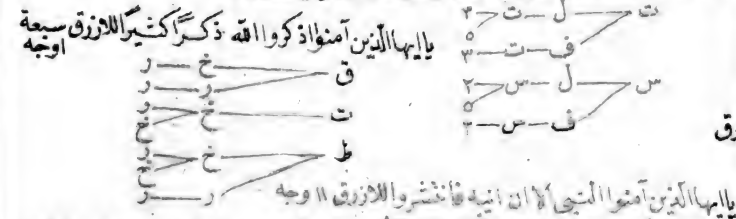 ت ل ت ٣
٥
ف ت ٣
س ل س ٢
٥
ف س ٢
يا ايها الّذين آمنوا اذكروا اللّه ذكرًا كثيرًا للازرق سبعة اوجه
ق خ ر
ر ر
ت خ ر
خ
ط خ ر
خ
ر ر
يا ايها الّذين آمنوا النبي الا ان انيه فانتشروا للازرق ١١ وجه